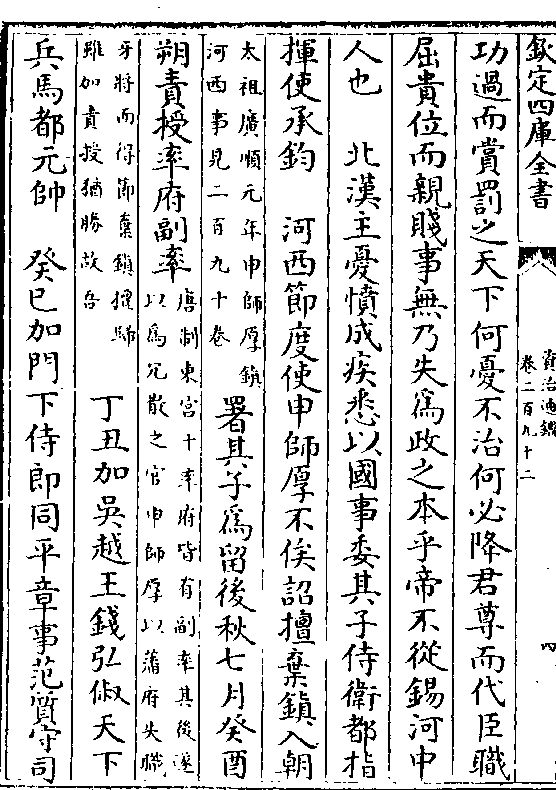 欽定四庫全書
資治通鑑
卷二百九十二
四
功過而賞罰之天下何憂不治何必降君尊而代臣職
屈貴位而親賤事無乃失為政之本乎帝不從錫河中
人也　北漢主憂憤成疾悉以國事委其子侍衛都指
揮使承鈞　河西節度使申師厚不俟詔擅棄鎮入朝
太祖廣順元年申師厚鎮
河西事見二百九十卷
署其子為留後秋七月癸酉
朔責授率府副率
唐制東宮十率府皆有副率其後遂
以為冗散之官申師厚以藩府失職
牙將而得節棄鎮擅歸
雖加責授猶勝故吾
丁丑加吳越王錢弘俶天下
兵馬都元帥　癸巳加門下侍郎同平章事范質守司